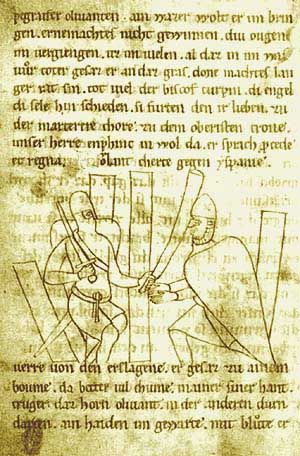 oliuanten. ain wazer wolt er im brin
gen. erne machtes nicht gewinnen. diu ougen
im uergiengen. uielen. al daz in im wa
toter gesaz er an daz gras. done machtes langer
rat sin. tot uiel der biscof turpin. di engel
di sele hin schieden. si furten den ir lieben. zu
der marterere chore. zu dem oberisten trone.
unser herre enphinc in wol da. er sprach pcede
et regna. Rolant cherte gegen yspanie.
uerre uon den erslagene. er gesaz zu ainem
boume. da beite uil chume. in ainer siner hant.
truger daz horn oliuant. in der anderen durn
darten. ain haiden im gewarte. mit blůte er